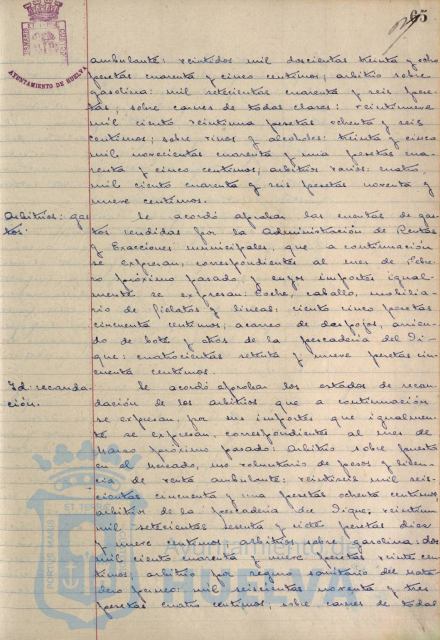 65
AYUNTAMIENTO DE HUELVA
ambulante: veintidos mil doscientas treinta y ocho
pesetas cuarenta y cinco centimos; arbitrio sobre
gasolina: mil setecientas cuarenta y seis pese-
tas; sobre carnes de todas clases: veintinueve
mil ciento veintiuna pesetas ochenta y seis
centimos; sobre vinos y alcoholes: treinta y cinco
mil novecientas cuarenta y una pesetas cua-
renta y cinco centimos; arbitrios varios: cuatro
mil ciento cuarenta y seis pesetas noventa y
nueve centimos.
Arbitrios: gas-
tos.
Se acordó aprobar las cuentas de gas-
tos rendidas por la Administración de Rentas
y Exacciones municipales, que a continuación
se expresan, correspondientes al mes de Febre-
ro próximo pasado y cuyos importes igual-
mente se expresan: Coche, caballo, mobilia-
rio de fielatos y lineas: ciento cinco pesetas
cincuenta centimos; acarreo de despojos, arrien-
do de bote y otros de la pescaderia del Di-
que: cuatrocientas setenta y nueve pesetas cin-
cuenta centimos.
Id: recauda-
ción.
Se acordó aprobar los estados de recau-
dación de los arbitrios que a continuación
se expresan, por sus importes que igualmen-
te se expresan, correspondientes al mes de
Marzo próximo pasado: Arbitrio sobre puestos
en el mercado, uso voluntario de pesos y licen-
cia de venta ambulante: veintiseis mil seis-
cientas cincuenta y una pesetas ochenta centimos;
arbitrios de la pescaderia del Dique: veintiun
mil setecientas sesenta y siete pesetas diez
y nueve centimos; arbitrios sobre gasolina: dos
mil ciento cuarenta y nueve pesetas veinte cen-
timos; arbitrio por seguro sanitario del mata-
dero porcino: mil seiscientas noventa y tres
pesetas cuatro centimos; sobre carnes de todas